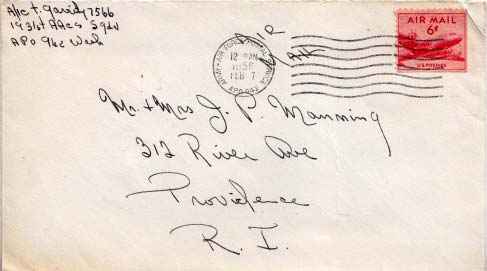 A/1c T. Garvity 7566
1931st AACS Sqdn
APO 942 Wash
AIR
MAIL
ARMY-AIR FORCE POSTAL SERVICE
12 AM
1956
FEB 7
APO 942
AIR MAIL
6¢
U.S. POSTAGE
Mr. + Mrs J. P. Manning
312 River Ave
Providence
R. I.